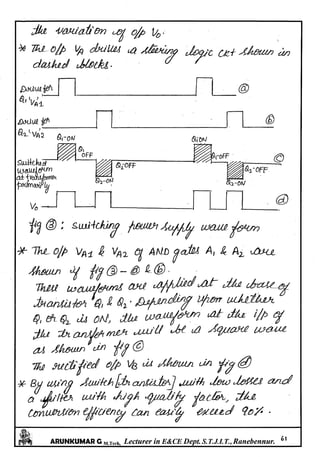 the variation of o/p Vo.
* The o/p VA drives a steering logic ckt shown in
dashed blocks.
Drive for
Q1 'VA1'
ⓐ
Drive for
Q2 'VA2'
ⓑ
Q1-ON
Q1-ON
Q1
OFF
Q1-OFF
Switched
waveform
at transformer
primary
ⓒ
Q2-OFF
Q2-OFF
Q2-ON
Q2-ON
Vo
ⓓ
fig ③ : switching power supply wave form
* The o/p VA1 & VA2 of AND gates A1 & A2 are
shown if fig ③ - ⓐ & ⓑ.
These waveforms are applied at the base of
transistor Q1 & Q2. Depending upon whether
Q1 or Q2 is ON, the waveform at the i/p of
the transformer will be a square wave
as shown in fig ⓒ
The rectified o/p VB is shown in fig ⓓ
* By using switch [transistor] with low losses and
a filter with high quality factor, the
conversion efficiency can easily exceed 90%.
ARUNKUMAR G M.Tech, Lecturer in E&CE Dept. S.T.J.I.T., Ranebennur.
61